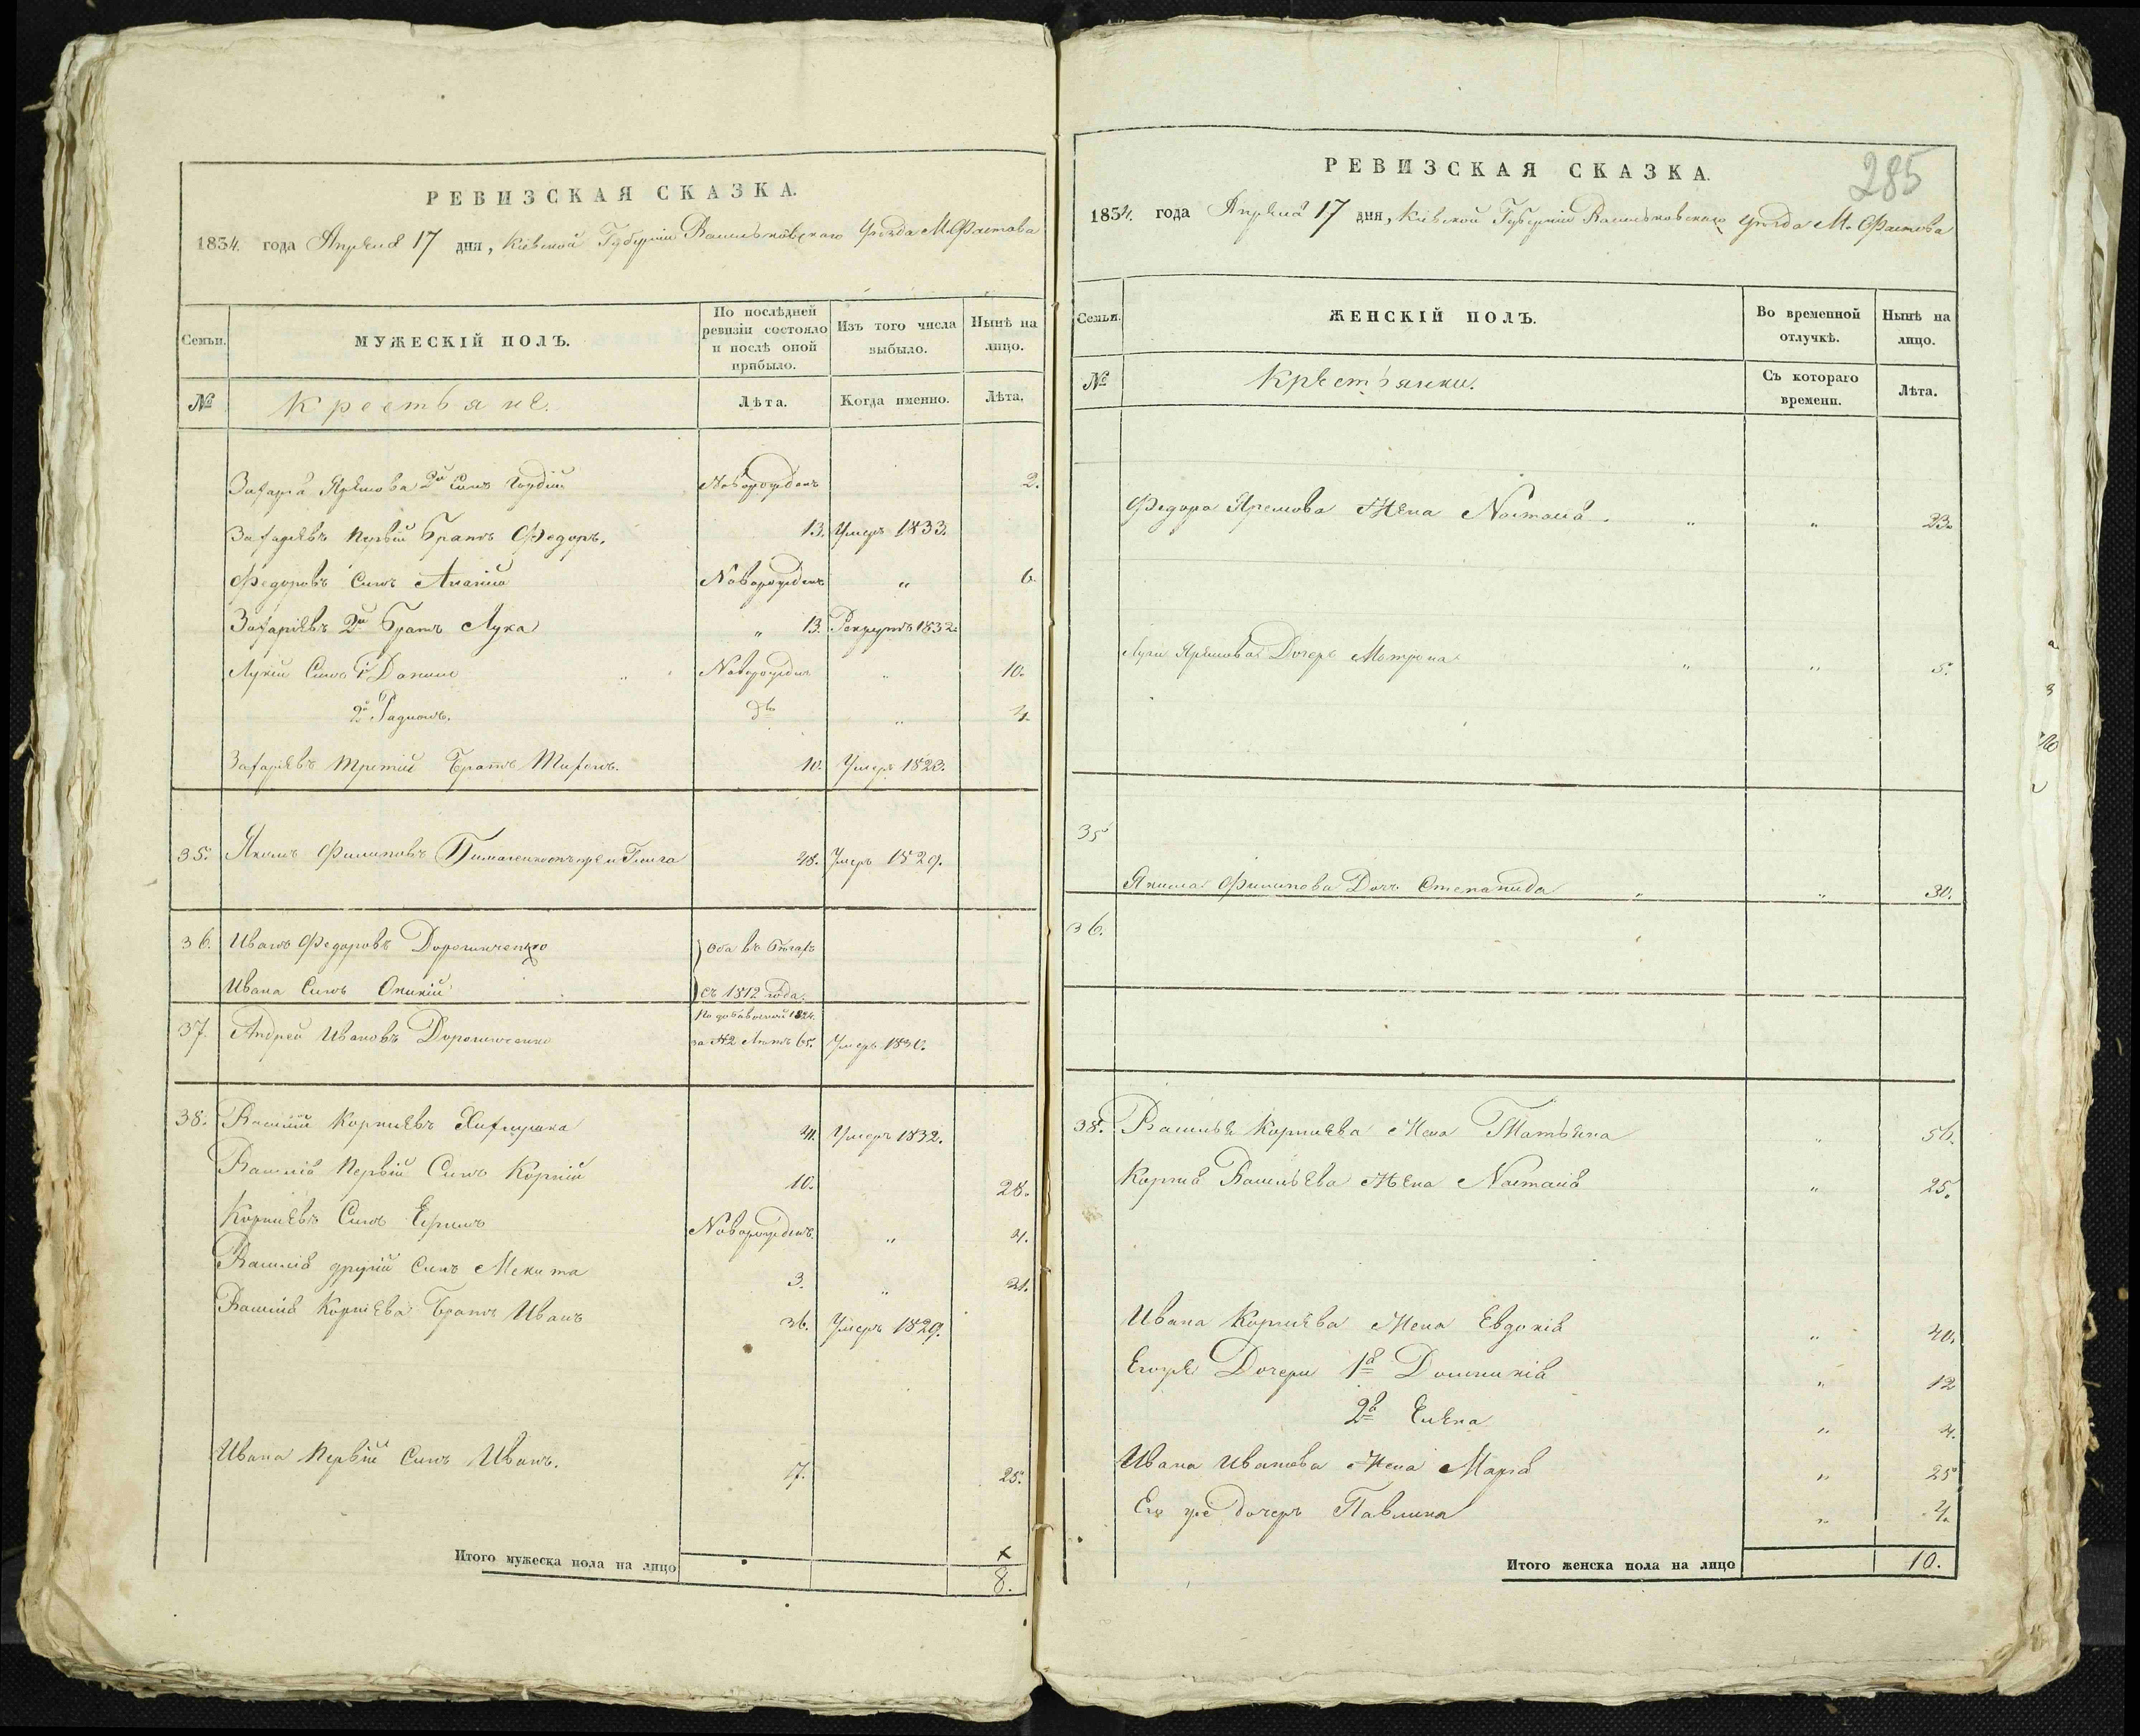 РЕВИЗСКАЯ СКАЗКА.
1834. года Апреля 17 дня, Кіевской Губерніи Васильковскаго Уѣзда М. Фастова
Семьи.
МУЖЕСКІЙ ПОЛЪ.
По послѣдней ревизіи состояло и послѣ оной прибыло.
Изъ того числа выбыло.
Нынѣ на лицо.
№
Крестьяне.
Лѣта.
Когда именно.
Лѣта.
Захарія Яремова 2й Сынъ Гордій Новорожденъ 2.
Захаріевъ первій Братъ Федоръ. 13. Умеръ 1833.
Федоровъ Сынъ Ананій Новорожденъ „ 6.
Захаріевъ 2й Братъ Лука „ 13. Рекрутъ 1832.
Лукій Сынъ 1й Данило „ Новорожден „ 10.
2й Радионъ. дто „ 4.
Захаріевъ третій Братъ Тихонъ. 10. Умеръ 1823.
35. Якимъ Филиповъ 48. Умеръ 1829.
36. Иванъ Федоровъ Дорошченко Оба въ бѣгахъ
Ивана Сынъ съ 1812 года.
37. Андрей Ивановъ Дорошченко По добавочной 1824. за №2 Лѣтъ 65. Умеръ 1830.
38. Василій Корніевъ 41. Умеръ 1832.
Василія Первій Сынъ Корній 10. 28.
Корніевъ Сынъ Новорожденъ. „ 4.
Василія другій Сынъ Мекита 3. „ 21.
Василія Корніева Братъ Иванъ 36. Умеръ 1829.
Ивана Первій Сынъ Иванъ. 7. 25.
Итого мужеска пола на лицо 8.
285
РЕВИЗСКАЯ СКАЗКА.
1834. года Апреля 17 дня, Кіевской Губерніи Васильковскаго Уѣзда М. Фастова
Семьи.
ЖЕНСКІЙ ПОЛЪ.
Во временной отлучкѣ.
Нынѣ на лицо.
№
Крестьянки.
Съ котораго времени.
Лѣта.
Федора Яремова Жена Настасія. „ „ 23.
Луки Яремова Дочеръ Мотрона „ „ 5.
35
Якима Филипова Дочъ Степанида „ „ 30.
36.
38. Василья Корніева Жена Татьяна „ 56.
Корнія Васильева Жена Настасія „ 25.
Ивана Корніева Жена Евдокія „ 40.
Егоже Дочери 1я Домникія „ 12
2я Елена „ 4.
Ивана Иванова Жена Марія „ 25
Его же дочеръ Павлина „ 4.
Итого женска пола на лицо 10.